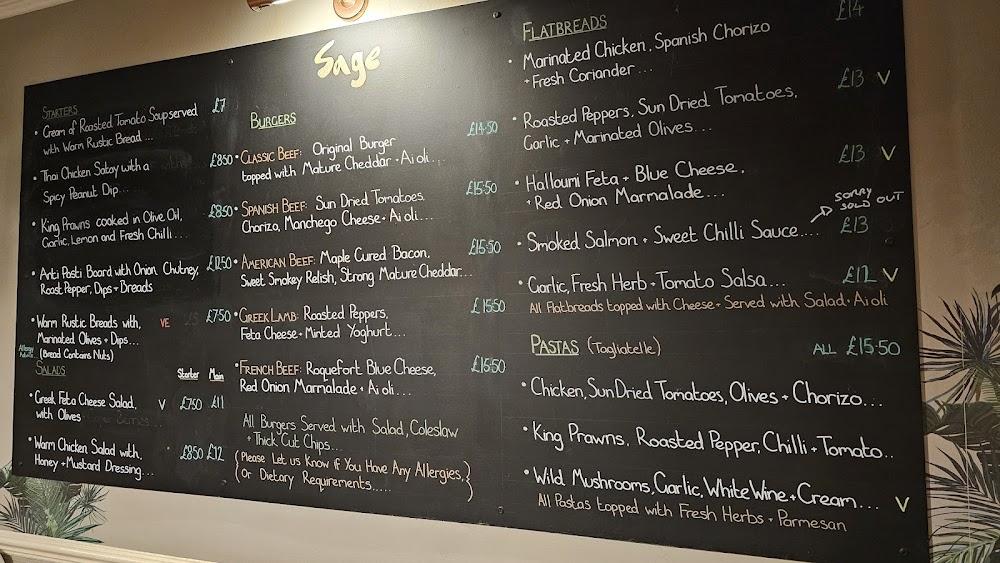 Sage
STARTERS
• Cream of Roasted Tomato Soup served £7
with Warm Rustic Bread...
• Thai Chicken Satay with a £8.50
Spicy Peanut Dip...
• King Prawns cooked in Olive Oil, £8.50
Garlic, Lemon and Fresh Chilli....
• Anti Pasti Board with Onion Chutney, £12.50
Roast Pepper, Dips + Breads
• Warm Rustic Breads with, VE £7.50
Marinated Olives + Dips...
(Bread Contains Nuts)
SALADS
Starter Main
• Greek Feta Cheese Salad, V £7.50 £11
with Olives
• Warm Chicken Salad with, £8.50 £12
Honey + Mustard Dressing....
BURGERS
• CLASSIC BEEF: Original Burger £14.50
topped with Mature Cheddar + Aioli...
• SPANISH BEEF: Sun Dried Tomatoes, £15.50
Chorizo, Manchego Cheese + Aioli....
• AMERICAN BEEF: Maple Cured Bacon, £15.50
Sweet Smokey Relish, Strong Mature Cheddar...
• GREEK LAMB: Roasted Peppers, £15.50
Feta Cheese + Minted Yoghurt...
• FRENCH BEEF: Roquefort Blue Cheese, £15.50
Red Onion Marmalade + Aioli...
All Burgers Served with Salad, Coleslaw
+ Thick Cut Chips...
(Please Let us Know if You Have Any Allergies,)
(Or Dietary Requirements.....)
FLATBREADS
• Marinated Chicken, Spanish Chorizo £14
+ Fresh Coriander...
• Roasted Peppers, Sun Dried Tomatoes, £13 V
Garlic + Marinated Olives...
• Halloumi Feta + Blue Cheese, £13 V
+ Red Onion Marmalade....
SORRY
SOLD OUT
• Smoked Salmon + Sweet Chilli Sauce.... £13
• Garlic, Fresh Herb + Tomato Salsa... £12 V
All Flatbreads topped with Cheese + Served with Salad + Aioli
PASTAS (Tagliatelle) ALL £15.50
• Chicken, Sun Dried Tomatoes, Olives + Chorizo...
• King Prawns, Roasted Pepper, Chilli + Tomato..
• Wild Mushrooms, Garlic, White Wine + Cream... V
All Pastas topped with Fresh Herbs + Parmesan